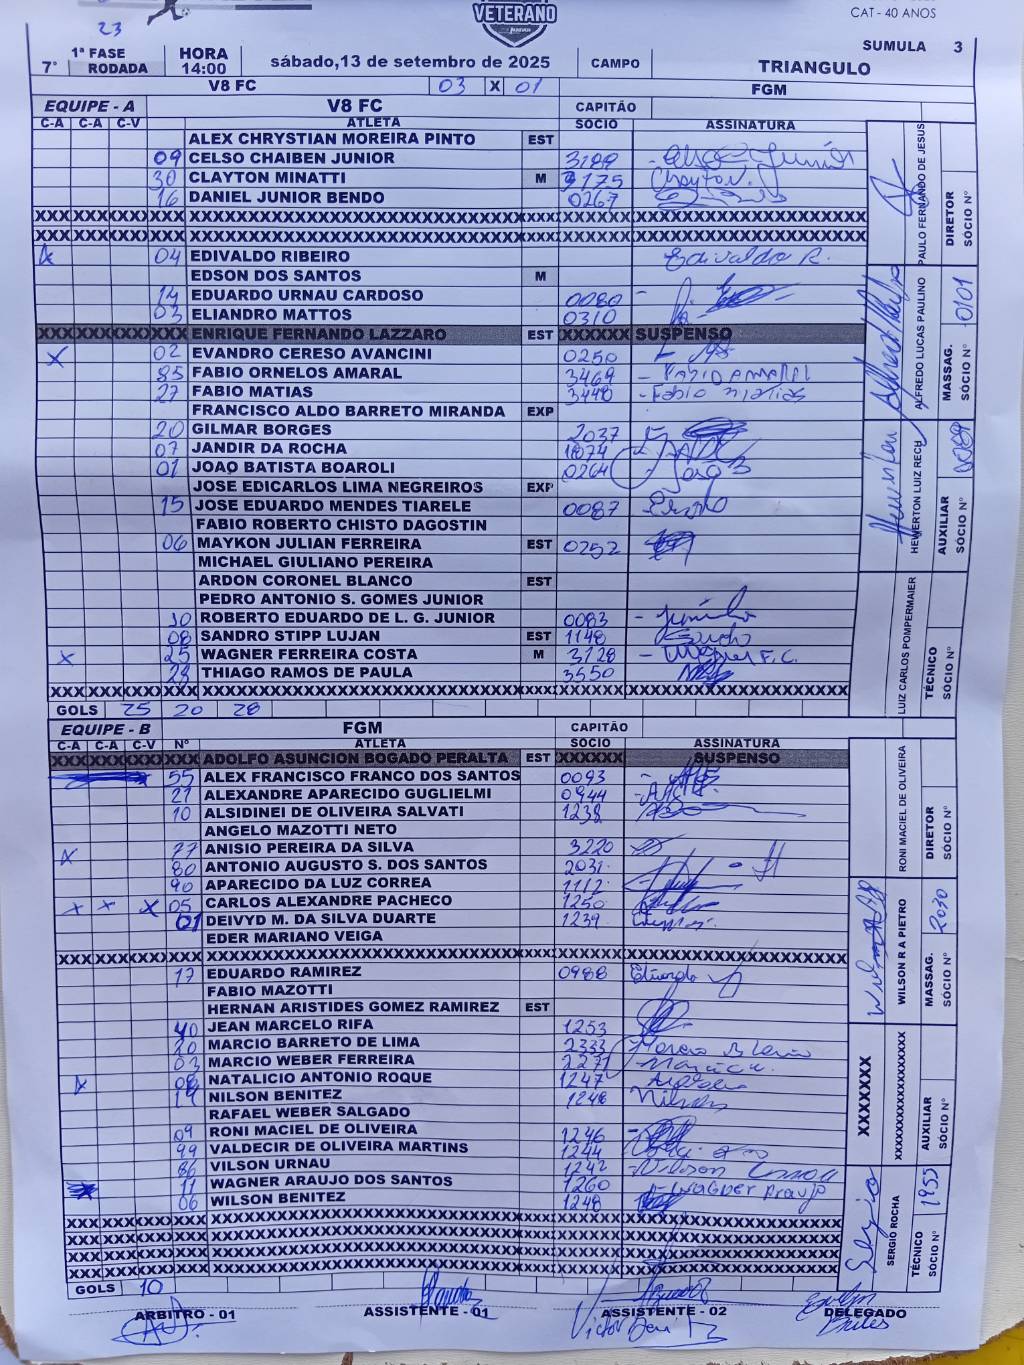 VETERANO
CAT - 40 ANOS
23
SUMULA 3
7° 1ª FASE RODADA HORA 14:00 sábado,13 de setembro de 2025 CAMPO TRIANGULO
V8 FC 03 X 01 FGM
EQUIPE - A V8 FC CAPITÃO
C-A C-A C-V ATLETA SOCIO ASSINATURA
ALEX CHRYSTIAN MOREIRA PINTO EST
09 CELSO CHAIBEN JUNIOR
30 CLAYTON MINATTI M 3175 Clayton
16 DANIEL JUNIOR BENDO 0267
XXX XXX XXX XXX XXXXXXXXXXXXXXXXXXXXXXXXXXXXX XXXX XXXXXX XXXXXXXXXXXXXXXXXXX
XXX XXX XXX XXX XXXXXXXXXXXXXXXXXXXXXXXXXXXXX XXXX XXXXXX XXXXXXXXXXXXXXXXXXX
04 EDIVALDO RIBEIRO Edivaldo R.
EDSON DOS SANTOS M
14 EDUARDO URNAU CARDOSO 0080
03 ELIANDRO MATTOS 0310
XXX XXX XXX XXX ENRIQUE FERNANDO LAZZARO EST XXXXXX SUSPENSO
X 02 EVANDRO CERESO AVANCINI 0250
85 FABIO ORNELOS AMARAL 3469 - FABIO AMARAL
27 FABIO MATIAS 3448 - Fabio matias
FRANCISCO ALDO BARRETO MIRANDA EXP
20 GILMAR BORGES 2037
07 JANDIR DA ROCHA 1074
01 JOAO BATISTA BOAROLI 0264 João B
JOSE EDICARLOS LIMA NEGREIROS EXP
15 JOSE EDUARDO MENDES TIARELE 0087
FABIO ROBERTO CHISTO DAGOSTIN
06 MAYKON JULIAN FERREIRA EST 0252
MICHAEL GIULIANO PEREIRA
ARDON CORONEL BLANCO EST
PEDRO ANTONIO S. GOMES JUNIOR
10 ROBERTO EDUARDO DE L. G. JUNIOR 0083
08 SANDRO STIPP LUJAN EST 1148
X 25 WAGNER FERREIRA COSTA M 3128 - Wagner F.C.
28 THIAGO RAMOS DE PAULA 3550
XXX XXX XXX XXX XXXXXXXXXXXXXXXXXXXXXXXXXXXXX XXXX XXXXXX XXXXXXXXXXXXXXXXXXX
GOLS 25 20 28
PAULO FERNANDO DE JESUS DIRETOR SÓCIO N°
ALFREDO LUCAS PAULINO MASSAG. SÓCIO N° 0101
HEWERTON LUIZ RECH AUXILIAR SÓCIO N° 0089
LUIZ CARLOS POMPERMAIER TÉCNICO SÓCIO N°
EQUIPE - B FGM CAPITÃO
C-A C-A C-V N° ATLETA SOCIO ASSINATURA
XXX XXX XXX XXX ADOLFO ASUNCION BOGADO PERALTA EST XXXXXX SUSPENSO
55 ALEX FRANCISCO FRANCO DOS SANTOS 0093
21 ALEXANDRE APARECIDO GUGLIELMI 0944
10 ALSIDINEI DE OLIVEIRA SALVATI 1238
ANGELO MAZOTTI NETO
X 27 ANISIO PEREIRA DA SILVA 3220
80 ANTONIO AUGUSTO S. DOS SANTOS 2031
90 APARECIDO DA LUZ CORREA 1112
X X X 05 CARLOS ALEXANDRE PACHECO 1250
01 DEIVYD M. DA SILVA DUARTE 1239
EDER MARIANO VEIGA
XXX XXX XXX XXX XXXXXXXXXXXXXXXXXXXXXXXXXXXXX XXXX XXXXXX XXXXXXXXXXXXXXXXXXX
17 EDUARDO RAMIREZ 0988 Eduardo
FABIO MAZOTTI
HERNAN ARISTIDES GOMEZ RAMIREZ EST
40 JEAN MARCELO RIFA 1253
20 MARCIO BARRETO DE LIMA 2333 Marcio B Lima
03 MARCIO WEBER FERREIRA 2271
X 08 NATALICIO ANTONIO ROQUE 1247
19 NILSON BENITEZ 1248 Nilson
RAFAEL WEBER SALGADO
09 RONI MACIEL DE OLIVEIRA 1246
99 VALDECIR DE OLIVEIRA MARTINS 1244
86 VILSON URNAU 1242 - Vilson Urnau
11 WAGNER ARAUJO DOS SANTOS 1260 - Wagner Araujo
06 WILSON BENITEZ 1248
XXX XXX XXX XXX XXXXXXXXXXXXXXXXXXXXXXXXXXXXX XXXX XXXXXX XXXXXXXXXXXXXXXXXXX
XXX XXX XXX XXX XXXXXXXXXXXXXXXXXXXXXXXXXXXXX XXXX XXXXXX XXXXXXXXXXXXXXXXXXX
XXX XXX XXX XXX XXXXXXXXXXXXXXXXXXXXXXXXXXXXX XXXX XXXXXX XXXXXXXXXXXXXXXXXXX
XXX XXX XXX XXX XXXXXXXXXXXXXXXXXXXXXXXXXXXXX XXXX XXXXXX XXXXXXXXXXXXXXXXXXX
GOLS 10
RONI MACIEL DE OLIVEIRA DIRETOR SÓCIO N°
WILSON R A PIETRO MASSAG. SÓCIO N° 2030
XXXXXXX XXXXXXXXXXXXXXXXXXXX AUXILIAR SÓCIO N°
Sergio SERGIO ROCHA TÉCNICO SÓCIO N° 1955
ARBITRO - 01 ASSISTENTE - 01 ASSISTENTE - 02 DELEGADO
Victor